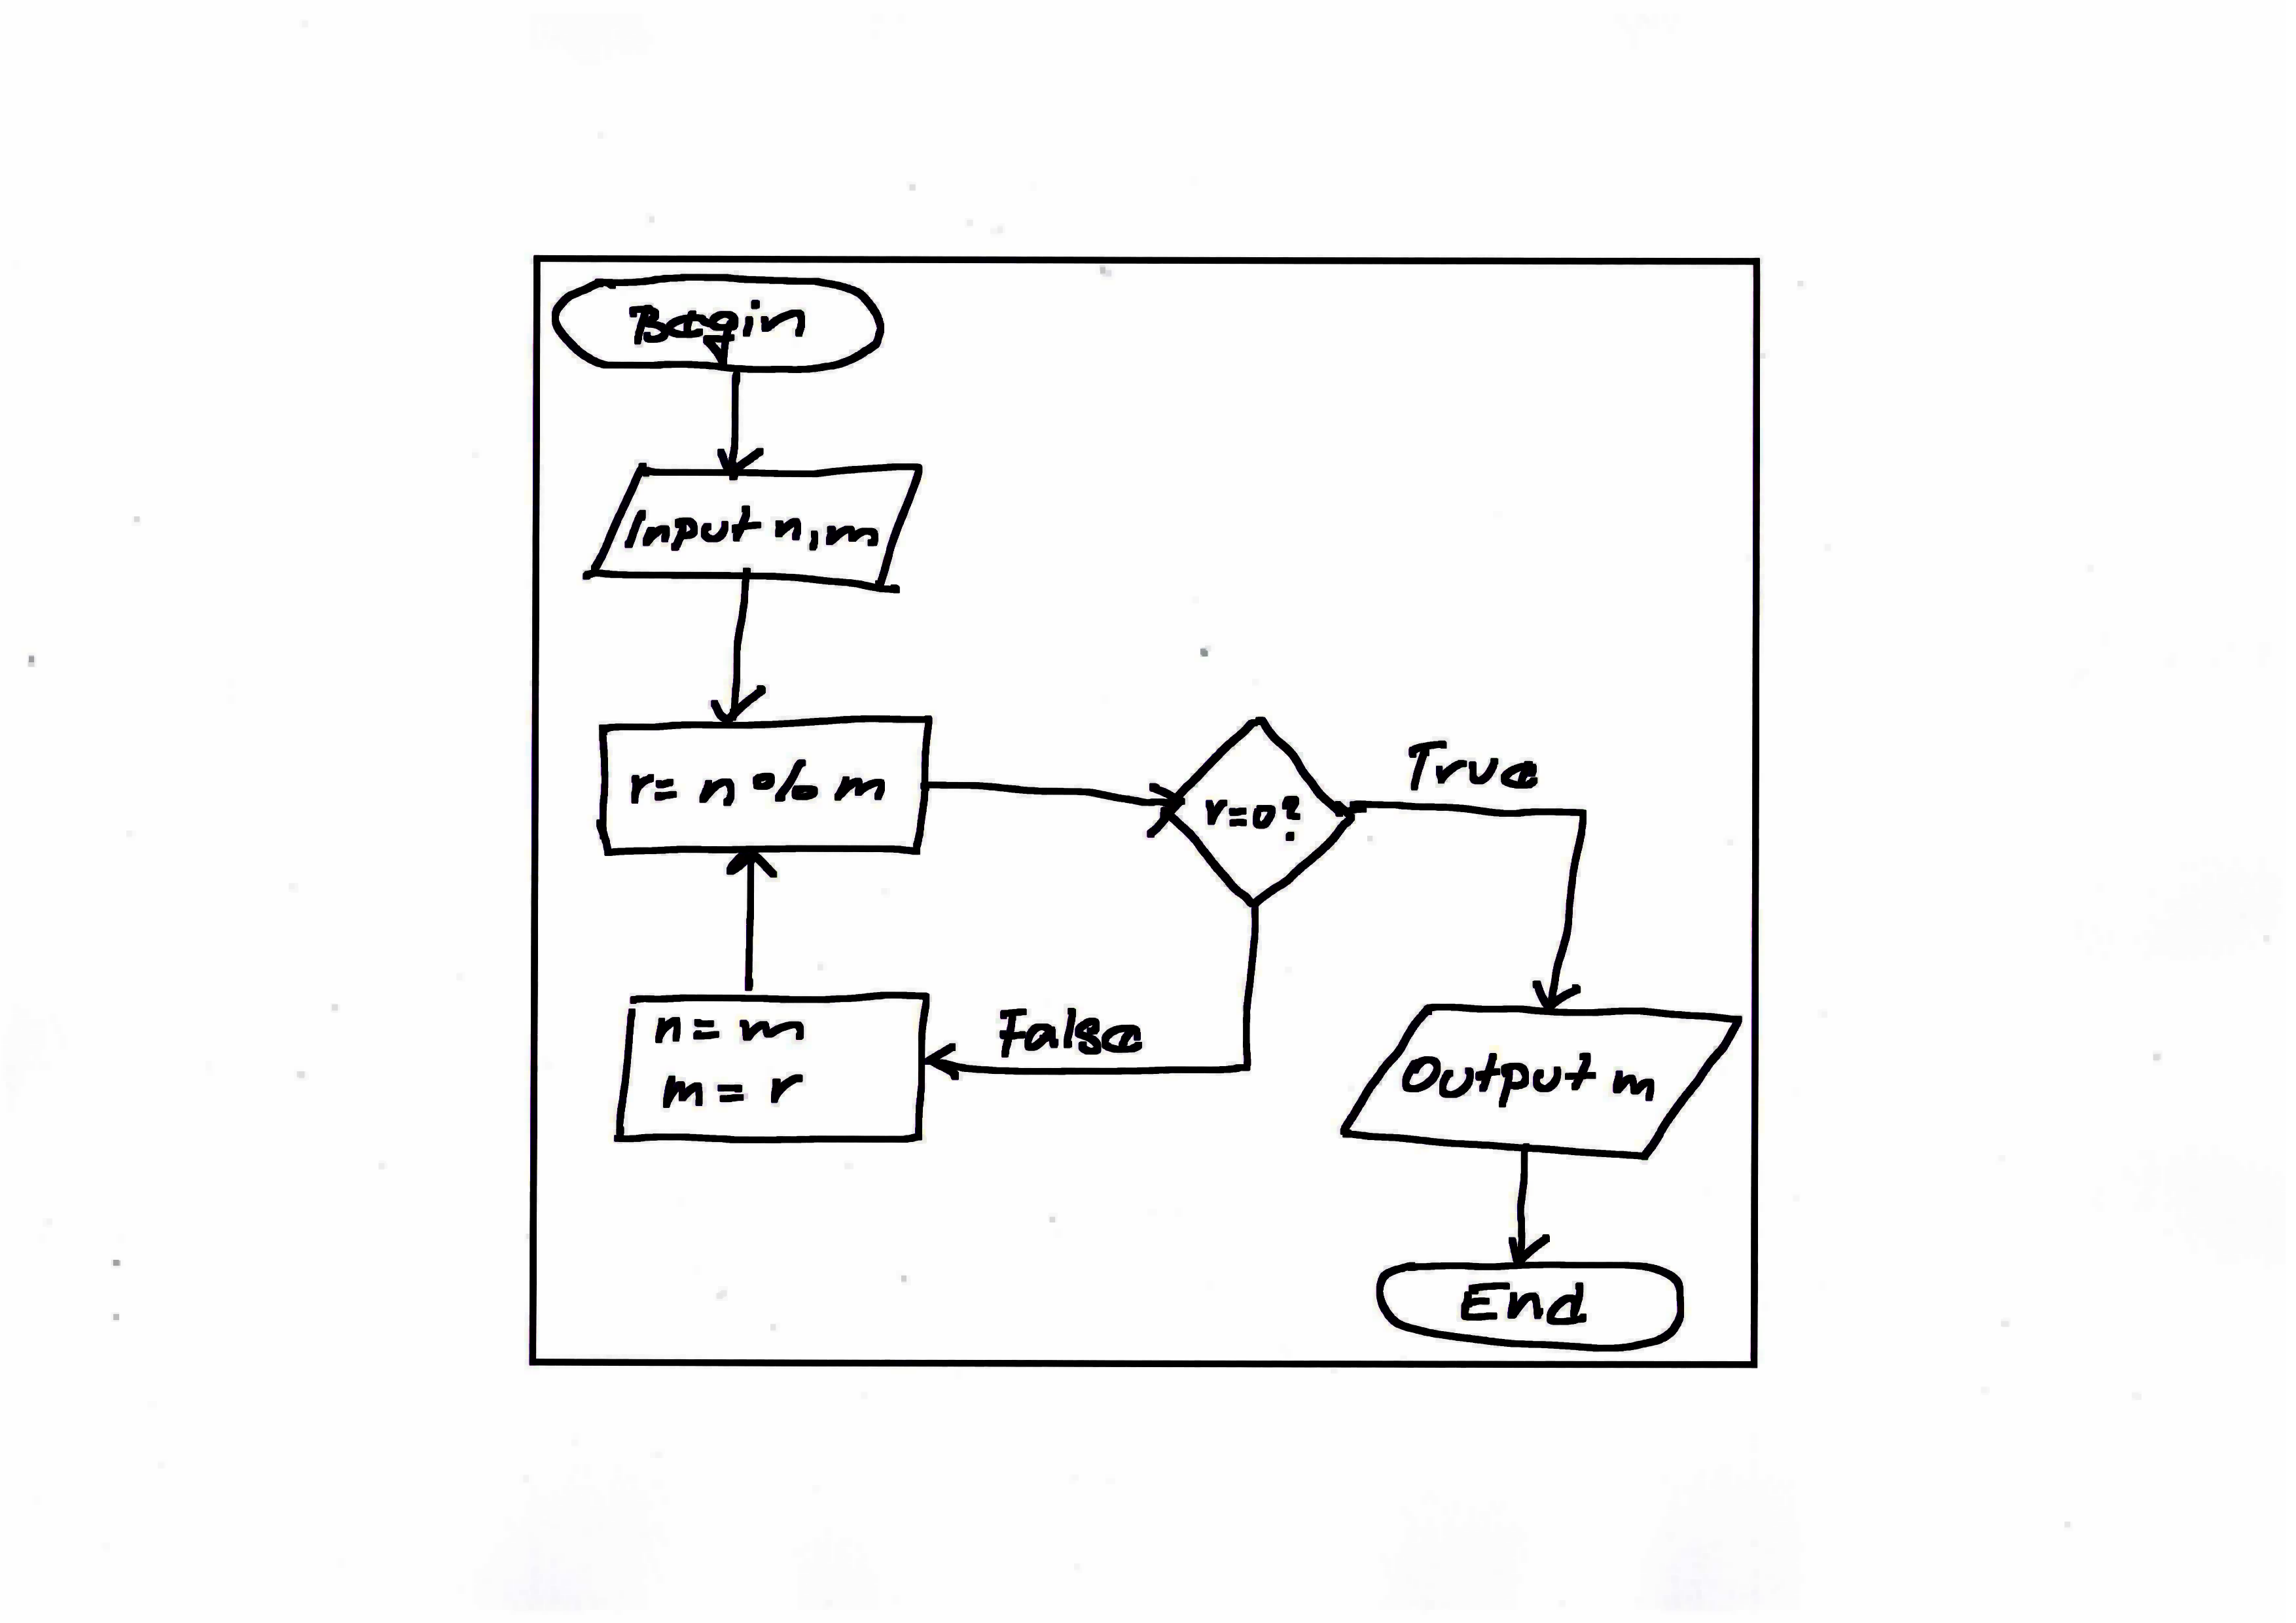 Begin
Input n,m
r= n % m
r=0?
True
False
n = m
m = r
Output m
End